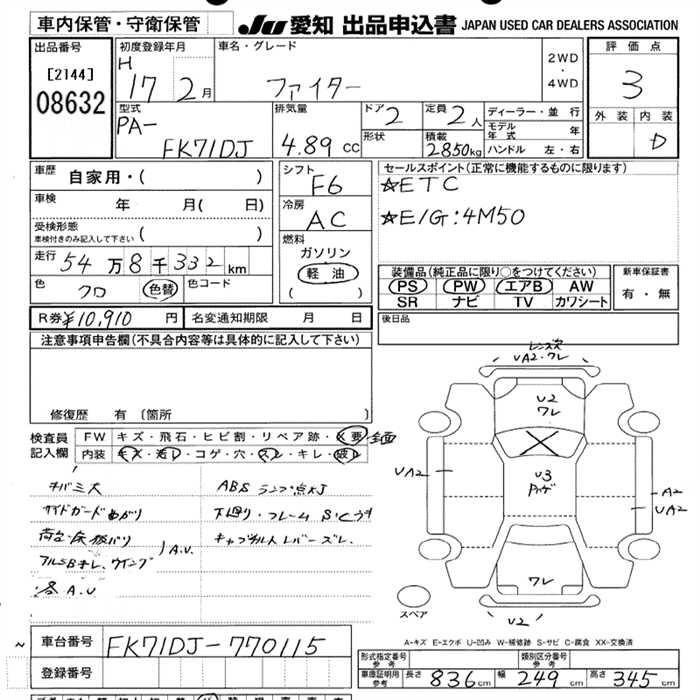 車内保管・守衛保管
JU 愛知 出品申込書 JAPAN USED CAR DEALERS ASSOCIATION
出品番号
[2144]
08632
初度登録年月
H
17 2月
車名・グレード
ファイター
2WD
・
4WD
評価点
3
外装 内装
D
型式
PA-
FK71DJ
排気量
4.89 cc
ドア 2
形状
定員 2人
積載 2850kg
ディーラー・並行
モデル年式 年
ハンドル 左・右
車歴 自家用・( )
車検 年 月( 日)
受検形態
車検付きのみ記入して下さい ( )
走行 54万8千332km
色 クロ 色替 色コード
シフト F6
冷房 AC
燃料
ガソリン
軽油
( )
セールスポイント(正常に機能するものに限ります)
☆ETC
☆E/G:4M50
装備品(純正品に限り○をつけてください)
PS PW エアB AW
SR ナビ TV カワシート
新車保証書
有・無
R券 ¥10,910 円 名変通知期限 月 日
後日品
注意事項申告欄(不具合内容等は具体的に記入して下さい)
修復歴 有 〔箇所 〕
検査員記入欄
FW キズ・飛石・ヒビ割・リペア跡・X要
内装 キズ・汚レ・コゲ・穴・スレ・キレ・破レ
キバミ大
サイドガードマガリ
荷台・床板バリ
A.U
各A.U
ABSランプ点灯
下廻り・フレームS
キャブチルトレバーズレ
UA2・ワレ
U2
ワレ
U3
UA2
A2
UA2
ワレ
U2
スペア
A-キズ E-エクボ U-凹み W-補修跡 S-サビ C-腐食 XX-交換済
車台番号 FK71DJ-770115
登録番号
形式指定番号
参考
類別区分番号
参考
車庫証明用
参考
長さ 836cm 幅 249cm 高さ 345cm